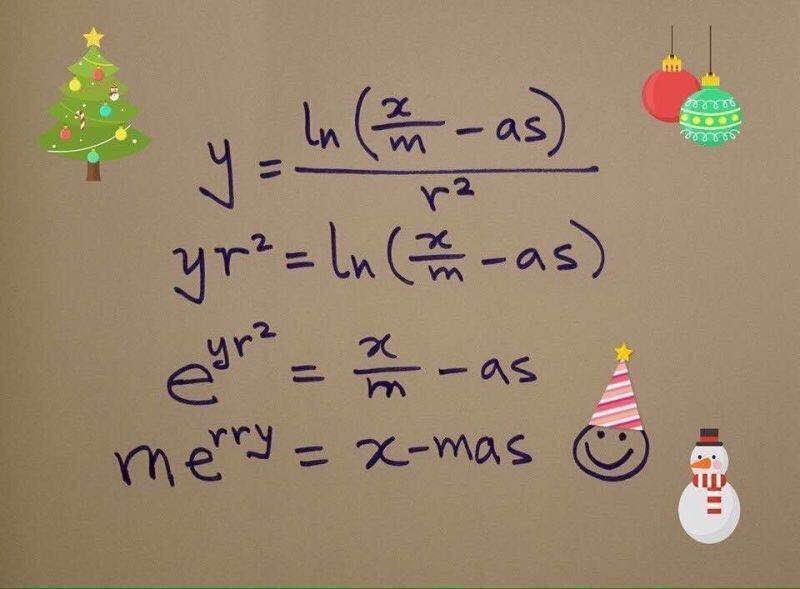 y = ln(x/m - as) / r²
yr² = ln(x/m - as)
e^yr² = x/m - as
me^rry = x - mas